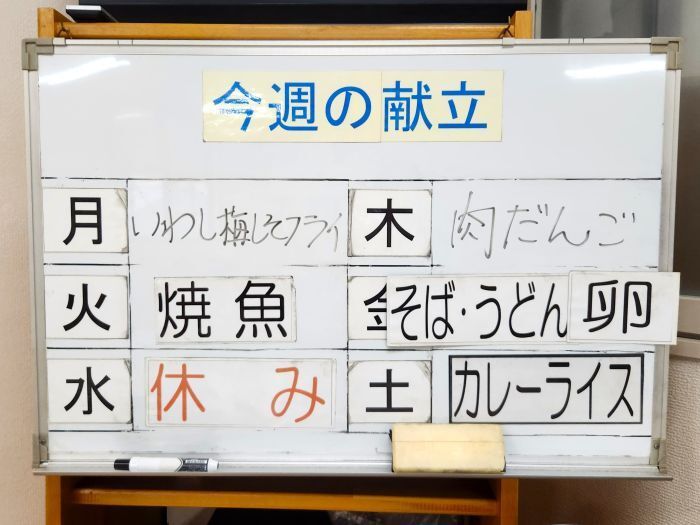 今週の献立
月 いわし梅しそフライ
火 焼魚
水 休み
木 肉だんご
金 そば・うどん 卵
土 カレーライス